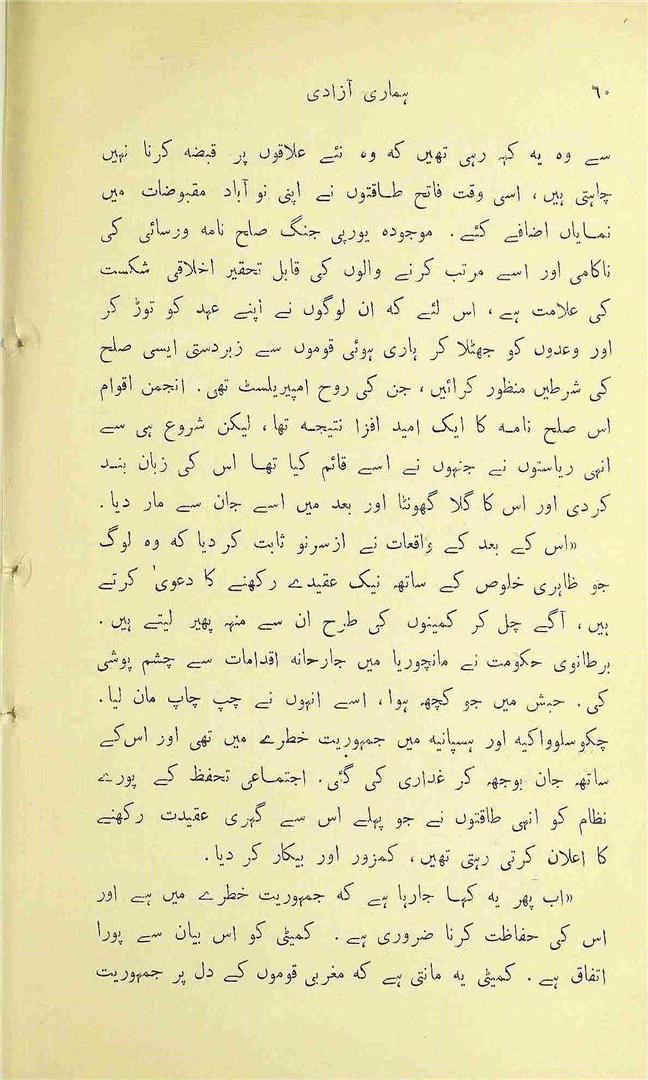 ٦٠ ہماری آزادی
سے وہ یہ کہہ رہی تھیں کہ وہ نئے علاقوں پر قبضہ کرنا نہیں
چاہتی ہیں، اسی وقت فاتح طاقتوں نے اپنی نو آباد مقبوضات میں
نمایاں اضافے کئے۔ موجودہ یورپی جنگ صلح نامہ ورسائی کی
ناکامی اور اسے مرتب کرنے والوں کی قابل تحقیر اخلاقی شکست
کی علامت ہے، اس لئے کہ ان لوگوں نے اپنے عہد کو توڑ کر
اور وعدوں کو جھٹلا کر ہاری ہوئی قوموں سے زبردستی ایسی صلح
کی شرطیں منظور کرائیں، جن کی روح امپیریلسٹ تھی۔ انجمن اقوام
اس صلح نامہ کا ایک امید افزا نتیجہ تھا، لیکن شروع ہی سے
انہی ریاستوں نے جنہوں نے اسے قائم کیا تھا اس کی زبان بند
کردی اور اس کا گلا گھونٹا اور بعد میں اسے جان سے مار دیا۔
«اس کے بعد کے واقعات نے ازسرنو ثابت کردیا کہ وہ لوگ
جو ظاہری خلوص کے ساتھ نیک عقیدے رکھنے کا دعویٰ کرتے
ہیں، آگے چل کر کمینوں کی طرح ان سے منہہ پھیر لیتے ہیں۔
برطانوی حکومت نے مانچوریا میں جارحانہ اقدامات سے چشم پوشی
کی۔ حبش میں جو کچھ ہوا، اسے انہوں نے چپ چاپ مان لیا۔
چکوسلوواکیہ اور ہسپانیہ میں جمہوریت خطرے میں تھی اور اس کے
ساتھ جان بوجھ کر غداری کی گئی۔ اجتماعی تحفظ کے پورے
نظام کو انہی طاقتوں نے جو پہلے اس سے گہری عقیدت رکھنے
کا اعلان کرتی رہتی تھیں، کمزور اور بیکار کر دیا۔
«اب پھر یہ کہا جارہا ہے کہ جمہوریت خطرے میں ہے اور
اس کی حفاظت کرنا ضروری ہے۔ کمیٹی کو اس بیان سے پورا
اتفاق ہے۔ کمیٹی یہ مانتی ہے کہ مغربی قوموں کے دل پر جمہوریت